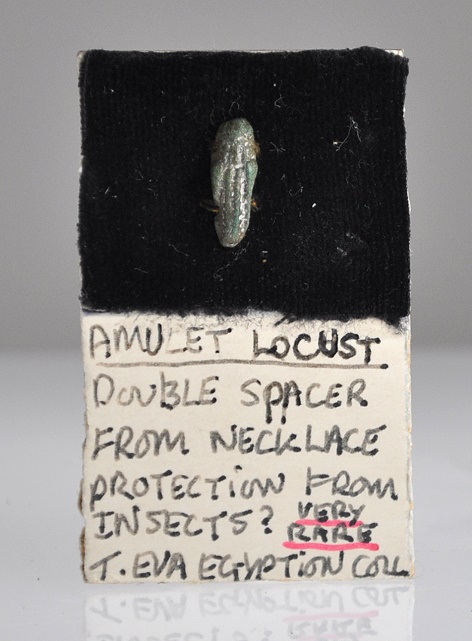 AMULET LOCUST
DOUBLE SPACER
FROM NECKLACE
PROTECTION FROM
INSECTS? VERY RARE
T. EVA EGYPTION COLL